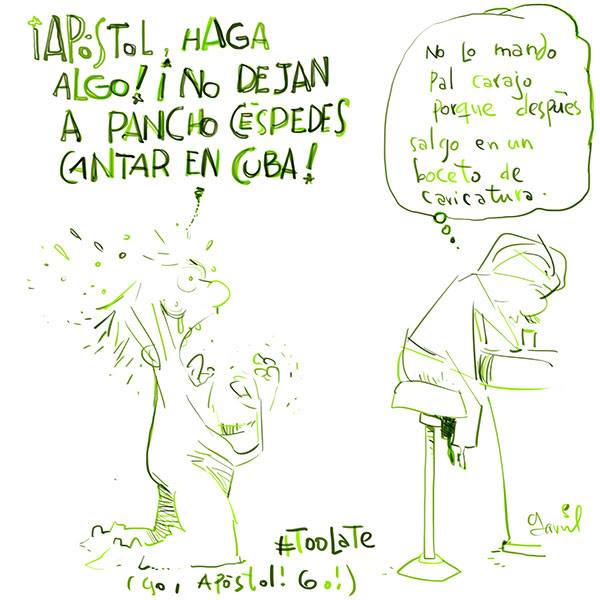 ¡APÓSTOL, HAGA
ALGO! ¡NO DEJAN
A PANCHO CÉSPEDES
CANTAR EN CUBA!
No lo mando
pal carajo
porque después
salgo en un
boceto de
caricatura.
#TOOLATE
(Go, APÓSTOL! Go!)